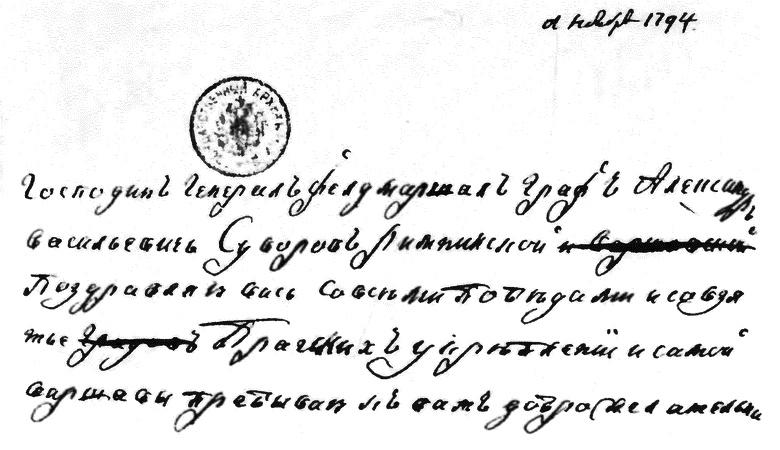 Ноябр 1794
Господинъ Генералъ фелдмаршалъ Графъ Александръ
васильевичь Суворовъ Римникской и Варшавской
Поздравляю вась со всеми победами и со взя
тье Градовъ Прагскихъ укрѣплений и самой
варшавы пребываю къ вамъ доброжелательны